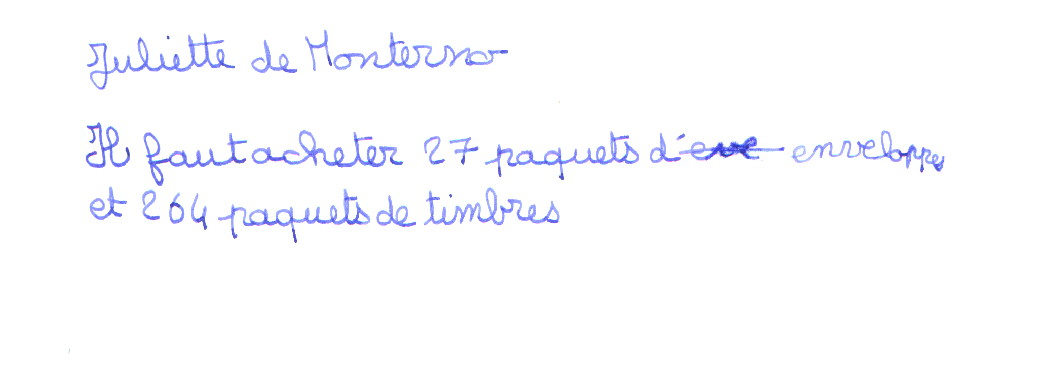 Juliette de Monterno
Il faut acheter 27 paquets d' enveloppes
et 264 paquets de timbres